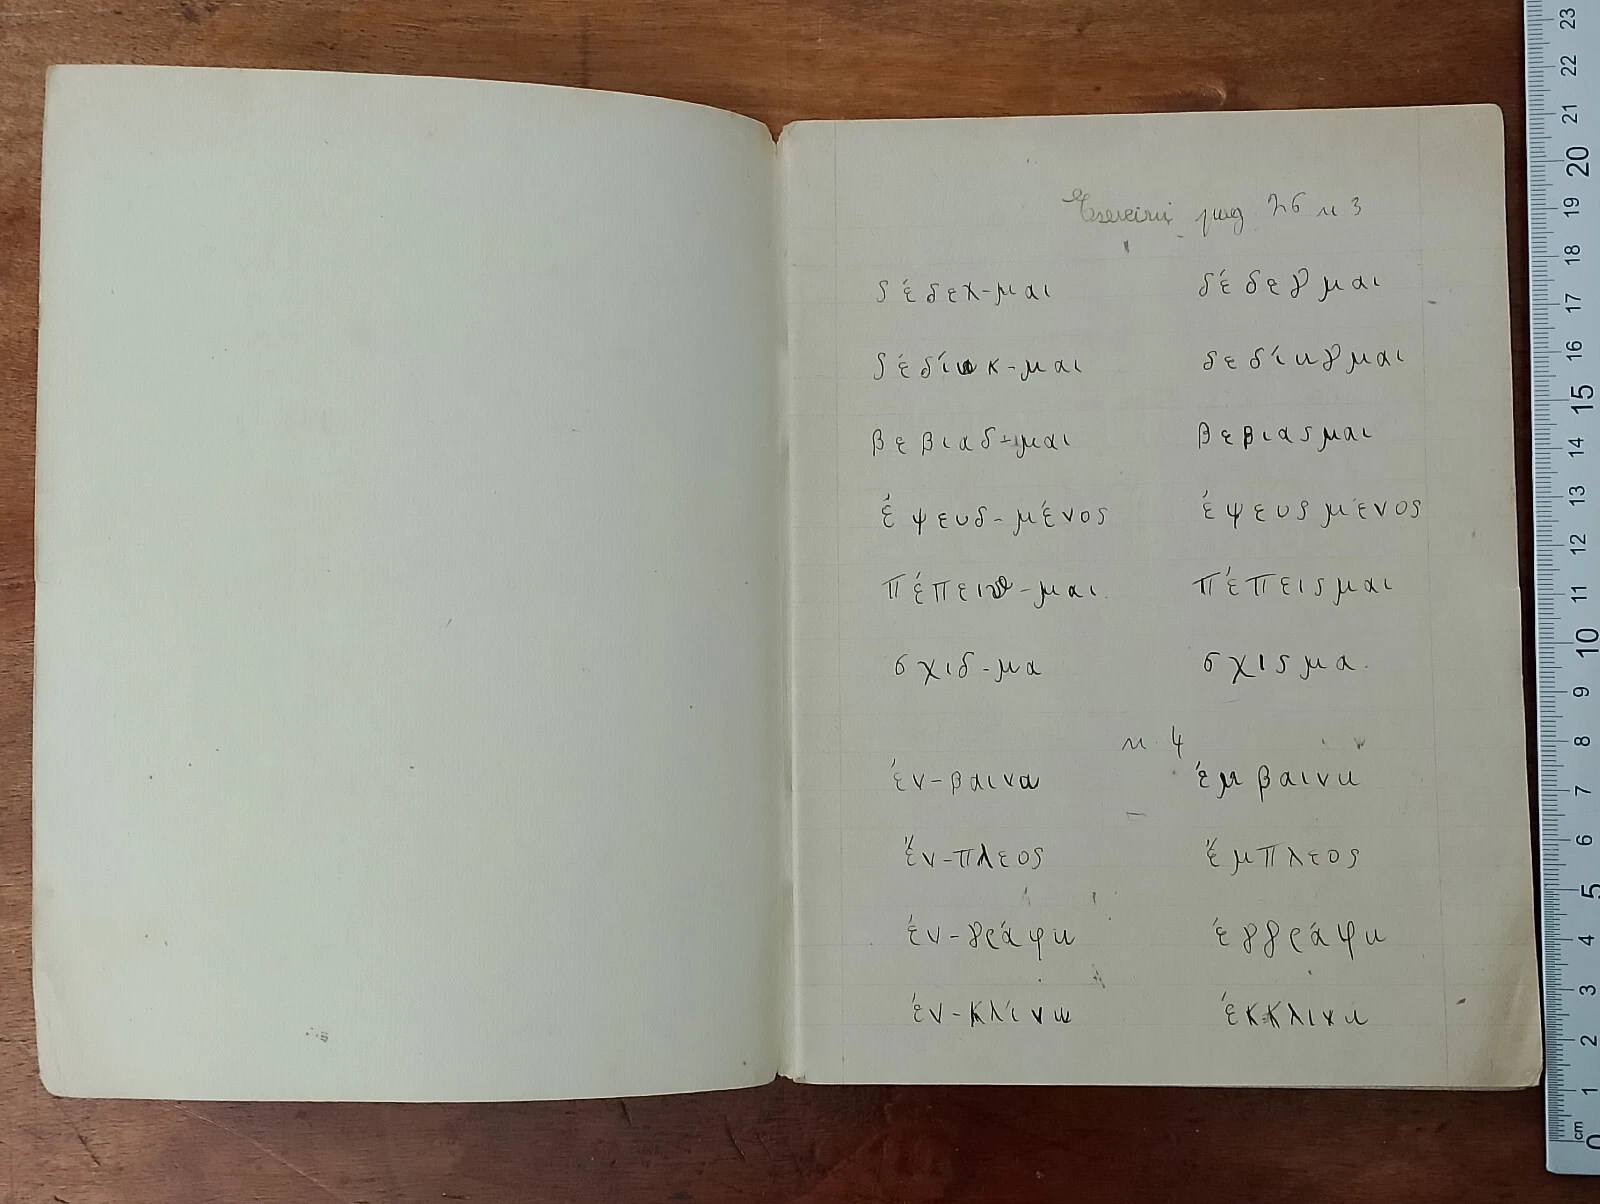 Esercizi pag. 26 n 3
δέδεχ-μαι δέδεγμαι
δέδίωκ-μαι δεδίωγμαι
βεβιαδ-μαι βεβιαςμαι
ἐψευδ-μένος ἐψευςμένος
πέπειθ-μαι πέπειςμαι
σχιδ-μα σχιςμα.
n. 4
ἐν-βαινω ἐμβαινω
ἔν-πλεος ἔμπλεος
ἐν-γράφω ἐγγράφω
ἐν-κλίνω ἐκκλινω
23
22
21
20
19
18
17
16
15
14
13
12
11
10
9
8
7
6
5
4
3
2
1
cm
0